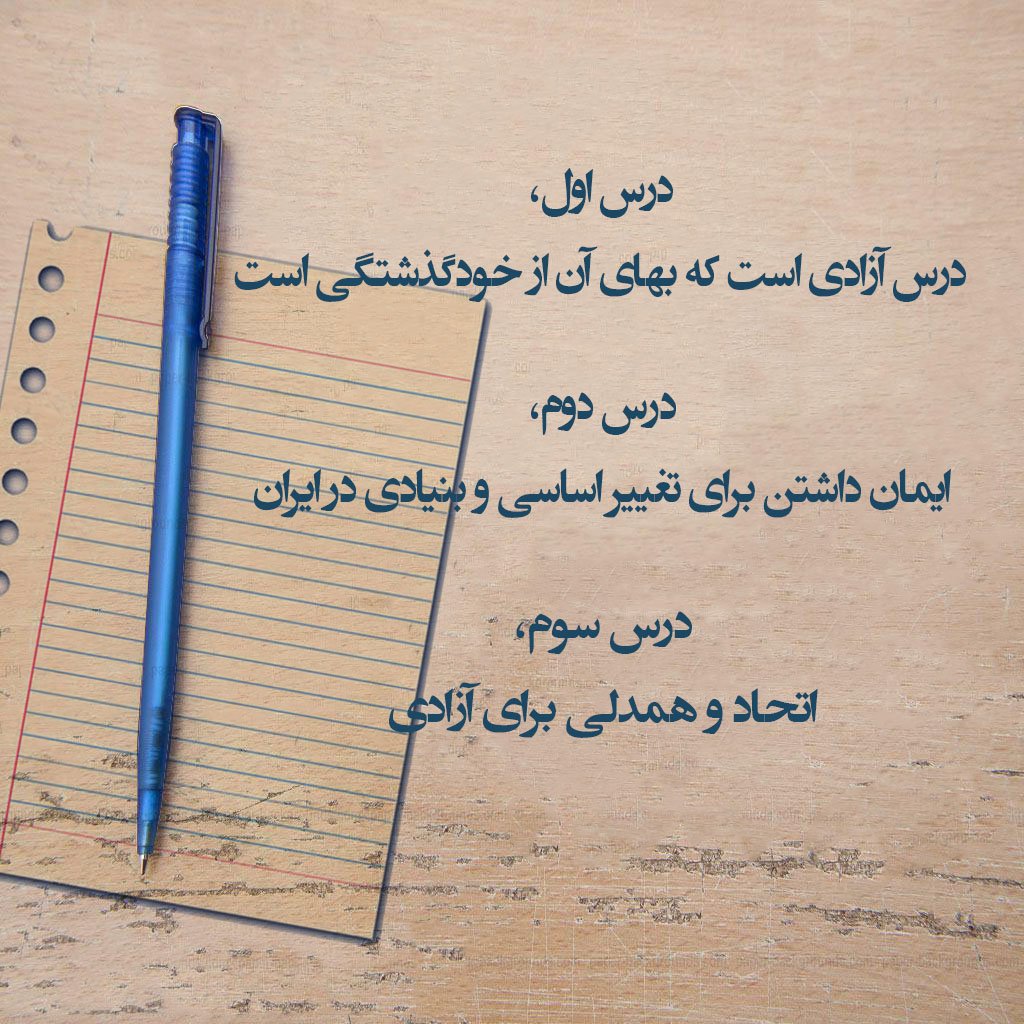 درس اول،
درس آزادی است که بهای آن از خودگذشتگی است
درس دوم،
ایمان داشتن برای تغییر اساسی و بنیادی در ایران
درس سوم،
اتحاد و همدلی برای آزادی